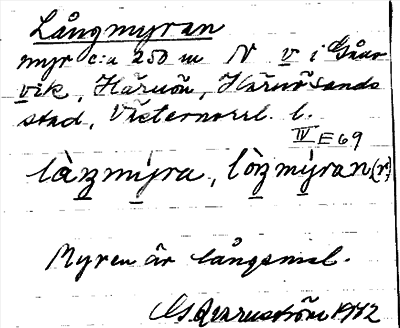 Långmyran
myr c:a 250 m N v i Gåna-
vik, Härnön, Härnösands
stad, Västernorrl. l.
IV E 69
làŋmýra, lòŋmýran(r)
Myren är långsmal.
1972